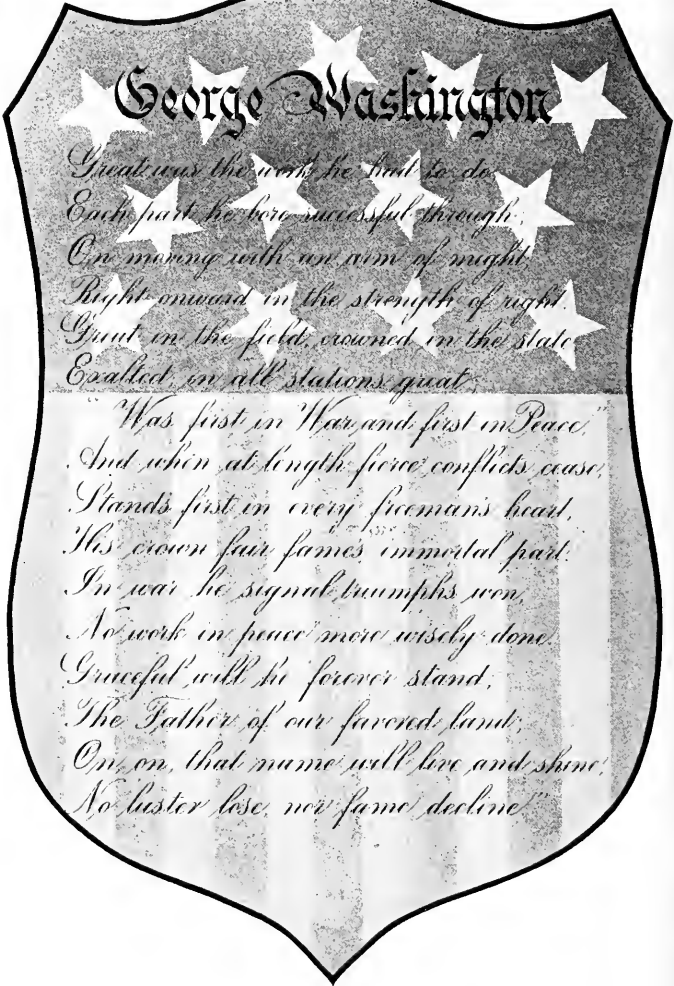 George Washington
Great was the work he had to do
Each part he bore successful through,
On moving with an arm of might,
Right onward in the strength of right.
Great in the field, crowned in the state
Exalted, in all stations great,
"Was first in War, and first in Peace,"
And when at length fierce conflicts cease,
Stands first in every freeman's heart,
His crown fair fame's immortal part.
In war he signal triumphs won,
No work in peace more wisely done.
Graceful will he forever stand,
The Father of our favored land,
On, on, that name will live and shine,
No luster lose, nor fame decline"